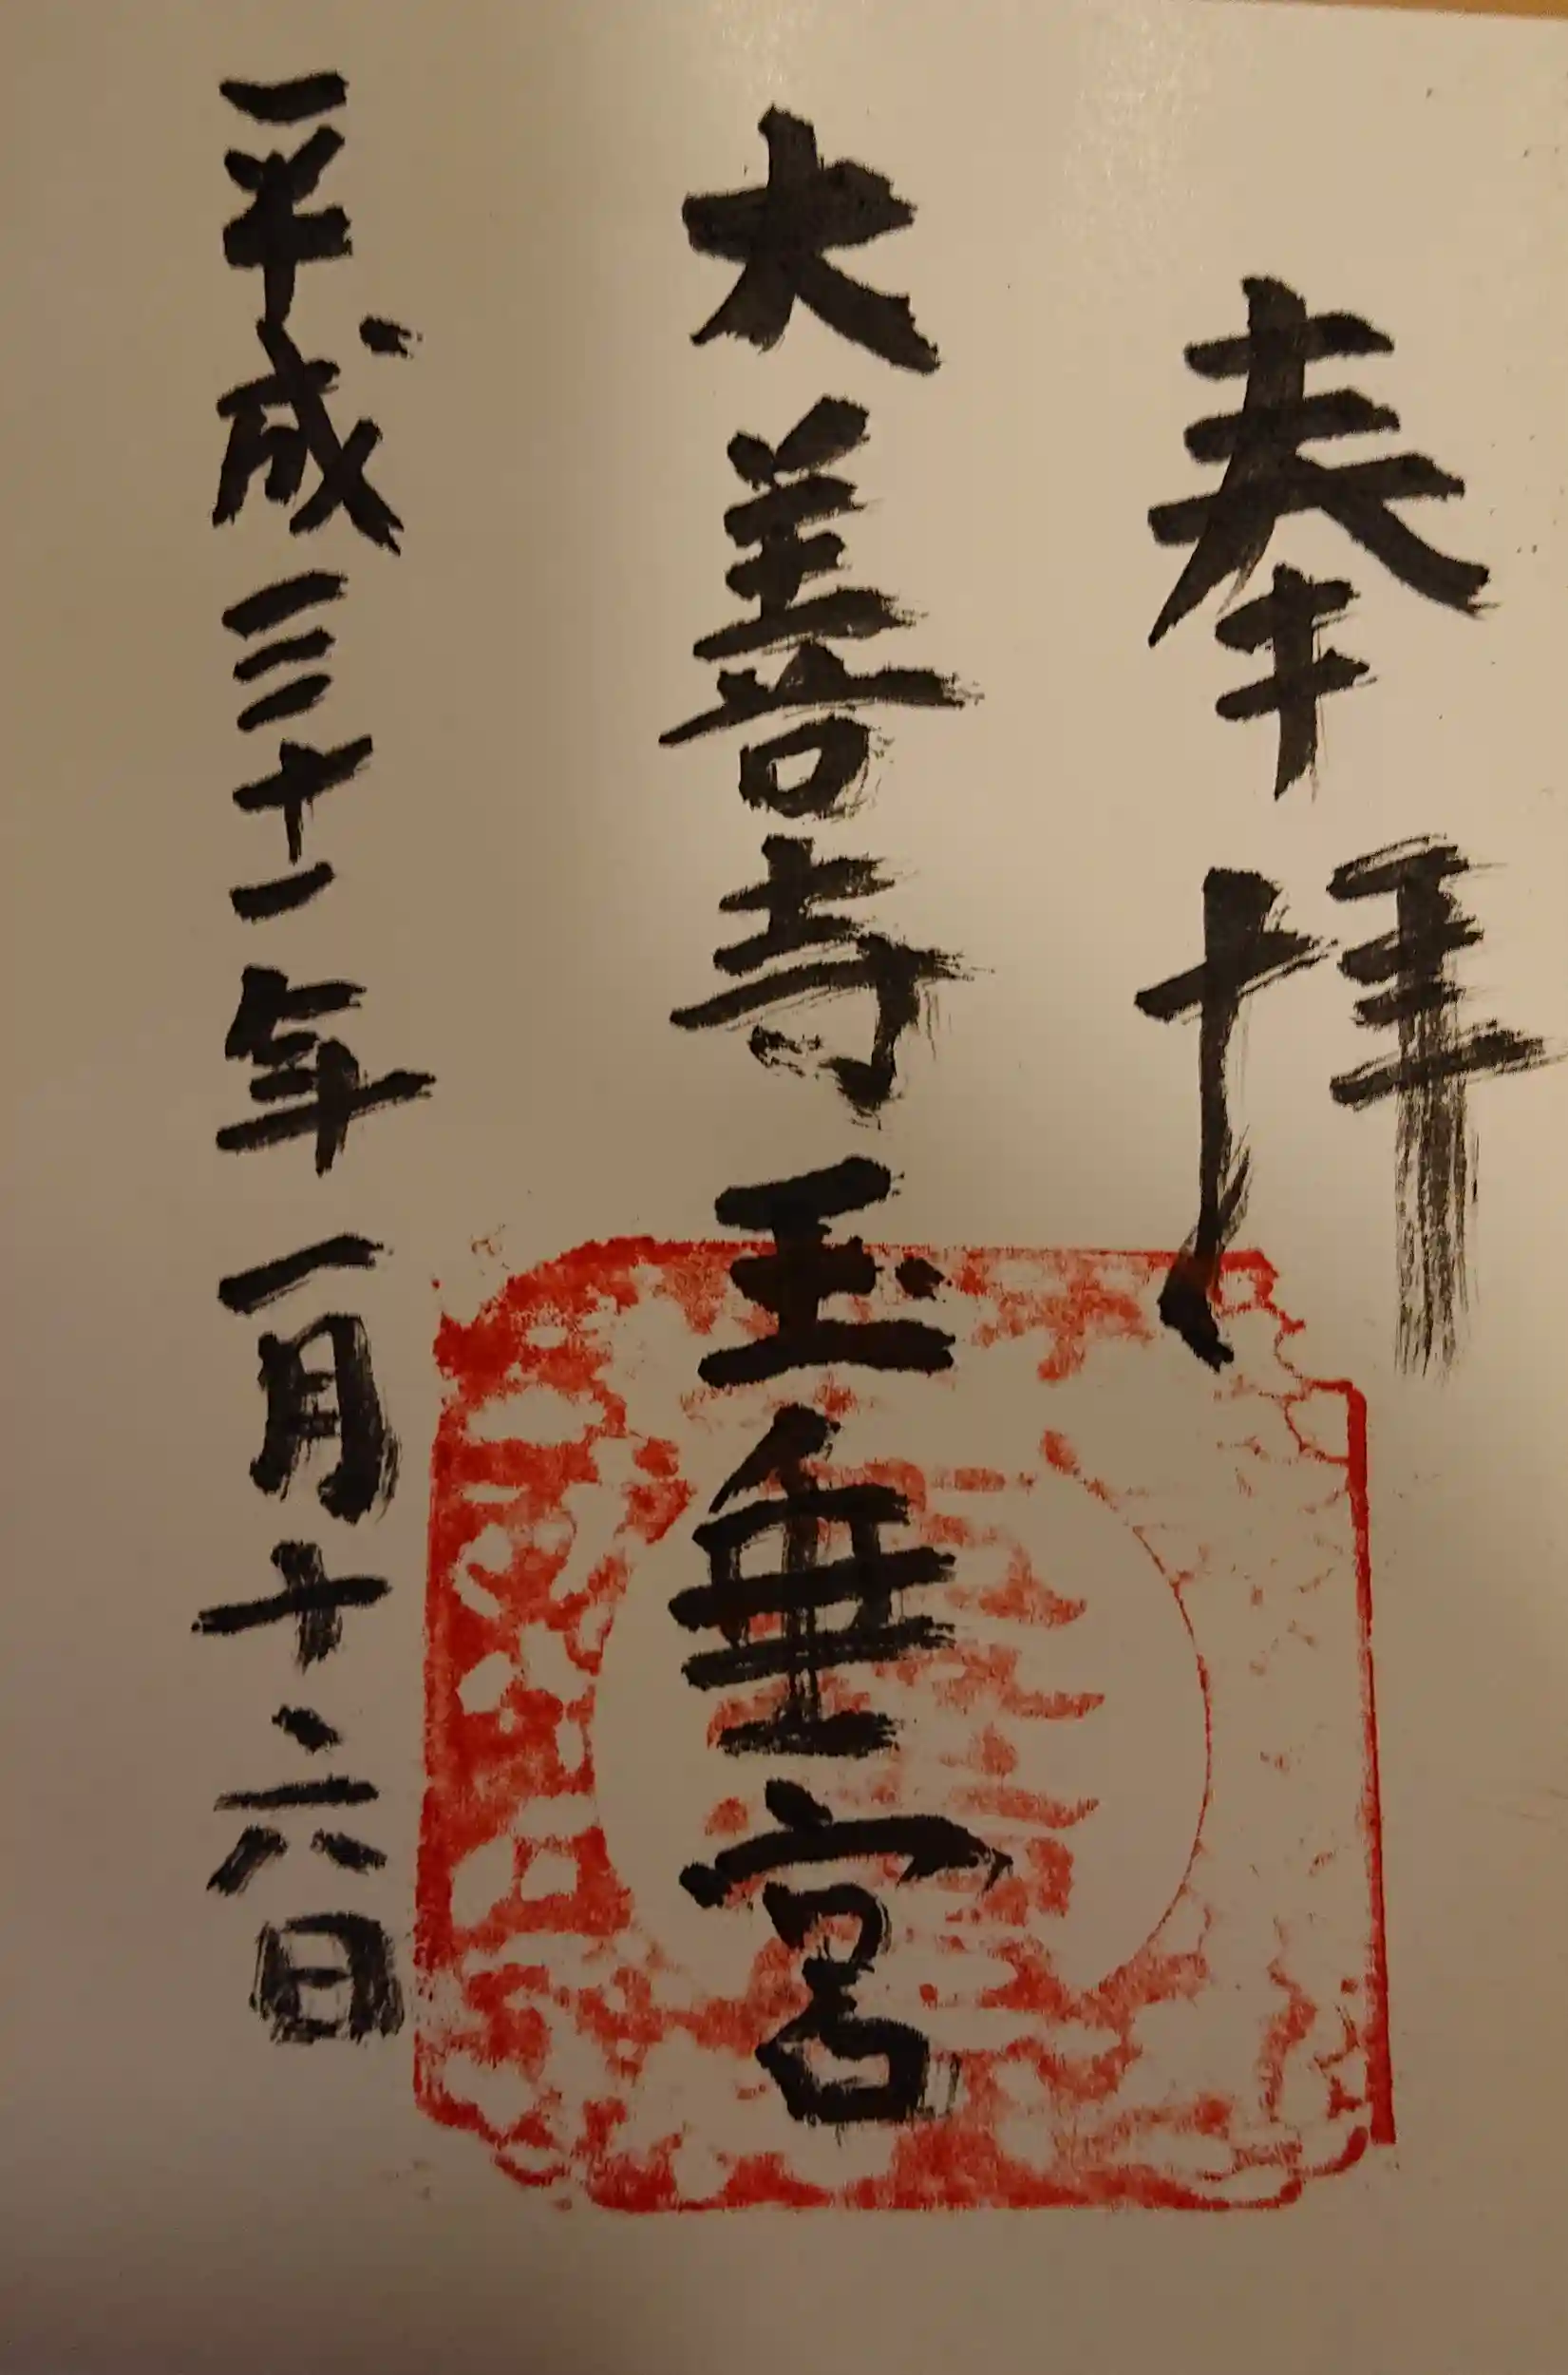 奉拝
大善寺玉垂宮
平成三十一年一月十六日